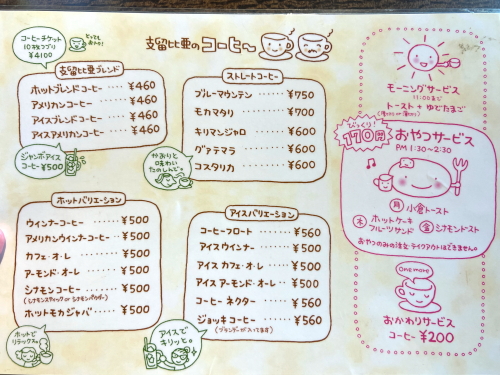 コーヒーチケット
10枚つづり
¥4100
とっても
おトク!
支留比亜の コーヒ〜
支留比亜ブレンド
ホットブレンドコーヒー ····· ¥460
アメリカンコーヒー ····· ¥460
アイスブレンドコーヒー ····· ¥460
アイスアメリカンコーヒー ···· ¥460
ジャンボアイス
コーヒー ¥500
ストレートコーヒー
ブルーマウンテン ····· ¥750
モカマタリ ········ ¥700
キリマンジャロ ······ ¥600
グァテマラ ········ ¥600
コスタリカ ········ ¥600
かおりと
味わい
たのしんで。
ホットバリエーション
ウインナーコーヒー ····· ¥500
アメリカンウインナーコーヒー ··· ¥500
カフェ・オ・レ ······· ¥500
アーモンド・オ・レ ····· ¥500
シナモンコーヒー ······ ¥500
(シナモンスティック or シナモンパウダー)
ホットモカジャバ ······ ¥500
ホットで
リラックス。
アイスバリエーション
コーヒーフロート ······ ¥560
アイスウインナー ······ ¥500
アイス カフェ・オ・レ ···· ¥500
アイス アーモンド・オ・レ ··· ¥500
コーヒー ネクター ····· ¥560
ジョッキコーヒー ······ ¥560
(ブランデーが入ってます)
アイスで
キリッと。
モーニングサービス
11:00まで
トースト + ゆでたまご
びっくり!
170円
おやつサービス
PM 1:30~2:30
月 小倉トースト
木 ホットケーキ
フルーツサンド
金 シナモントースト
おやつのみの注文・テイクアウトはできません。
One more
おかわりサービス
コーヒー ¥200